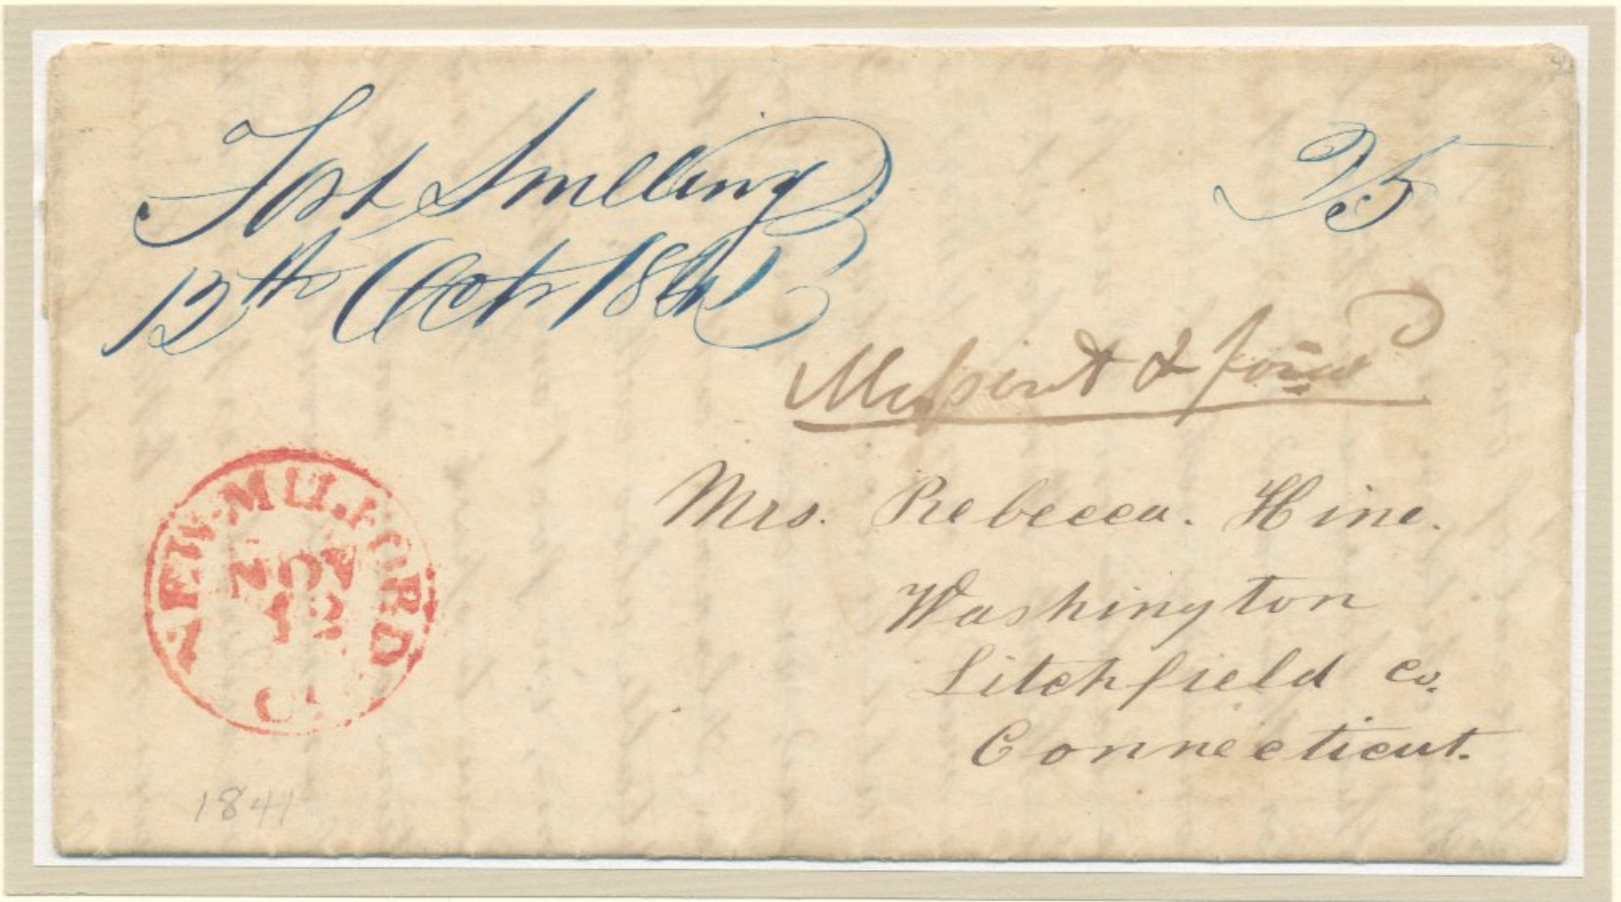 Fort Snelling
12th Oct 1841
25
Missent & ford
Mrs. Rebecca. Hine.
Washington
Litchfield Co.
Connecticut.
NEW-MILFORD
NOV
12
1841